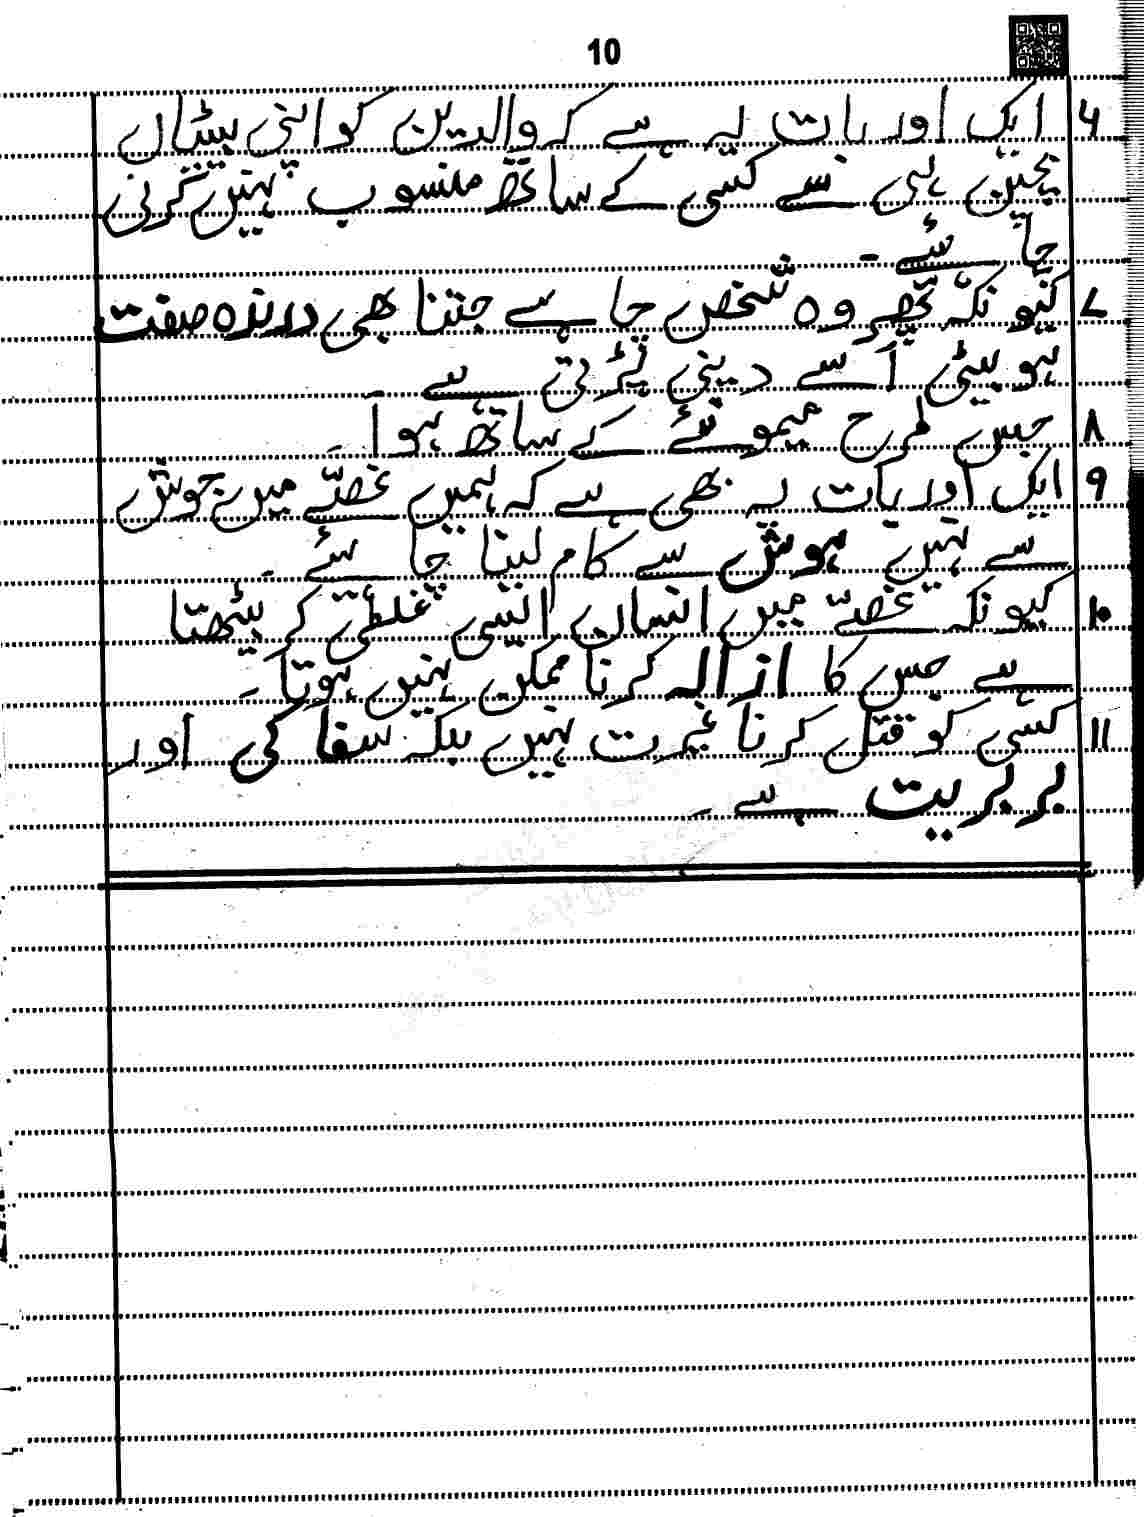 10
۶ ایک اور بات یہ ہے کہ والدین کو اپنی بیٹیاں
بچپن ہی سے کسی کے ساتھ منسوب نہیں کرنی
چاہئے ۔
۷ کیونکہ پھر وہ شخص چاہے جتنا بھی درندہ صفت
ہو بیٹی اُسے دینی پڑتی ہے ۔
۸ جس طرح میمونے کے ساتھ ہوا ۔
۹ ایک اور بات یہ بھی ہے کہ ہمیں غصّے میں جوش
سے نہیں ہوش سے کام لینا چاہئے ۔
۱۰ کیونکہ غصّے میں انسان ایسی غلطی کر بیٹھتا
ہے جس کا ازالہ کرنا ممکن نہیں ہوتا ۔
۱۱ کسی کو قتل کرنا غیرت نہیں بلکہ سفاکی اور
بربریت ہے ۔